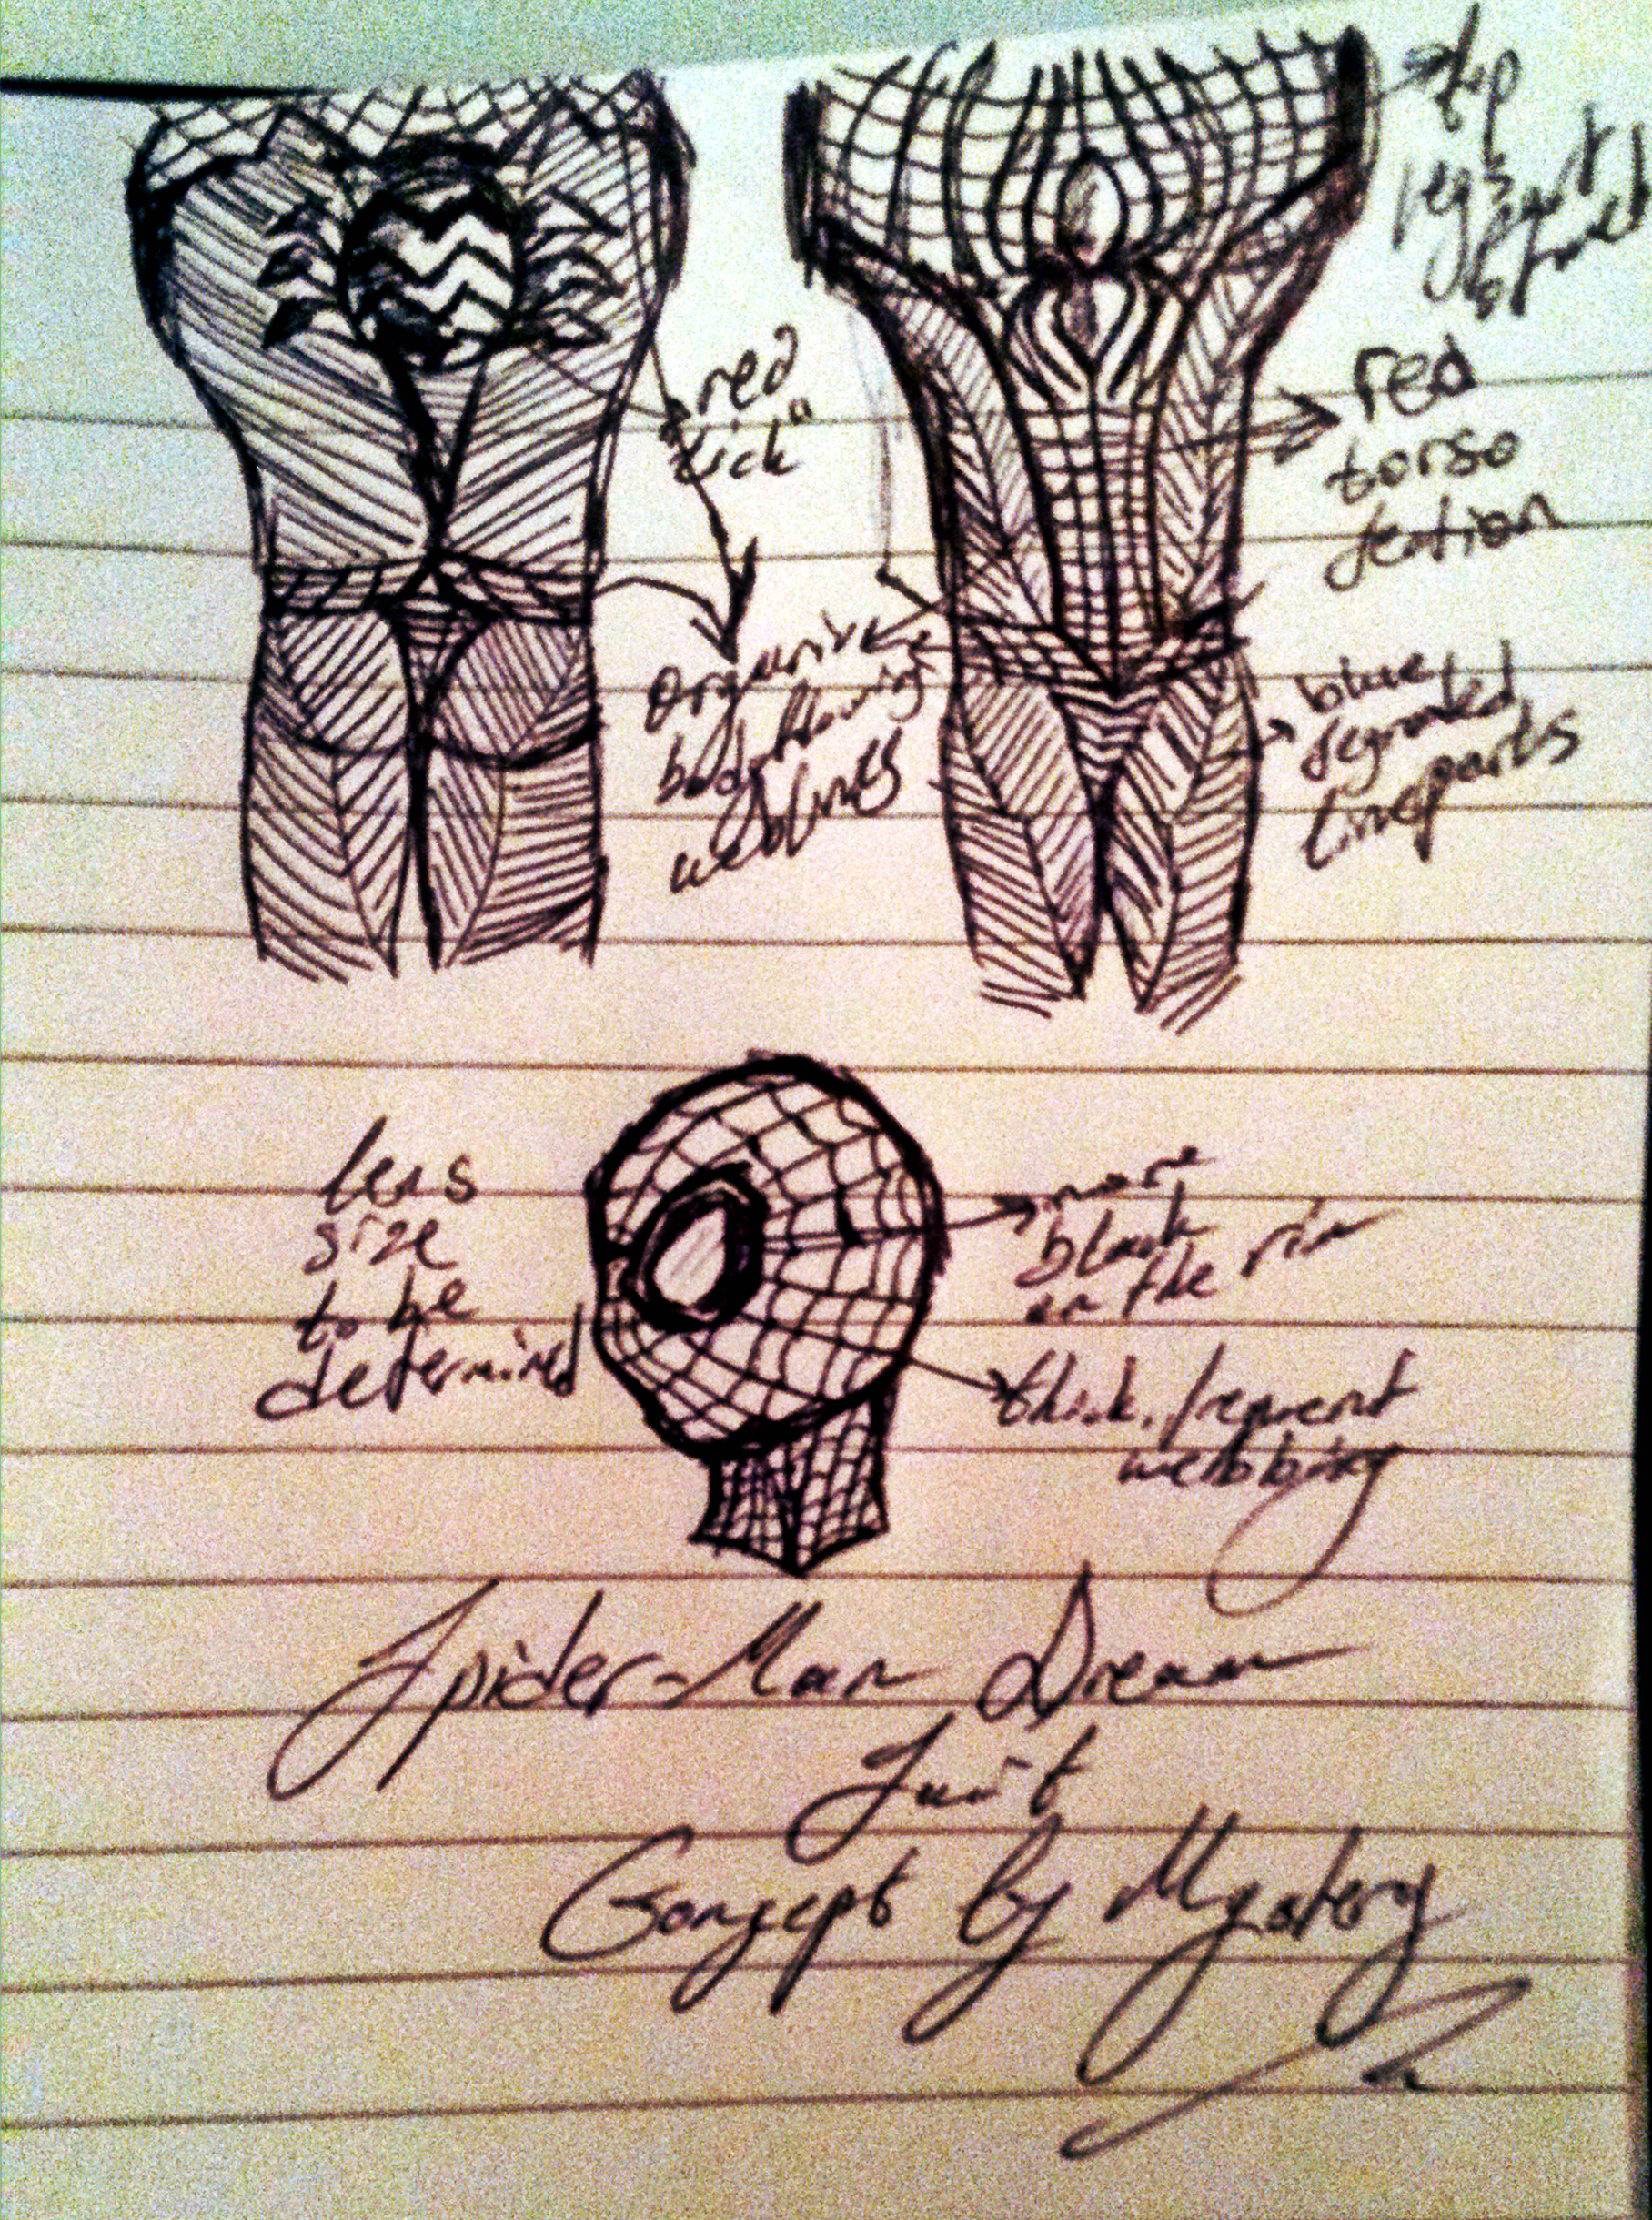 red
"tick"
Organive
body flowing
weblines
red
torso
section
blue
segmented
lineparts
lens
size
to be
determined
more
black
on the rim
thick, frequent
webbing
Spider-Man Dream
Suit
Concept by Mystery